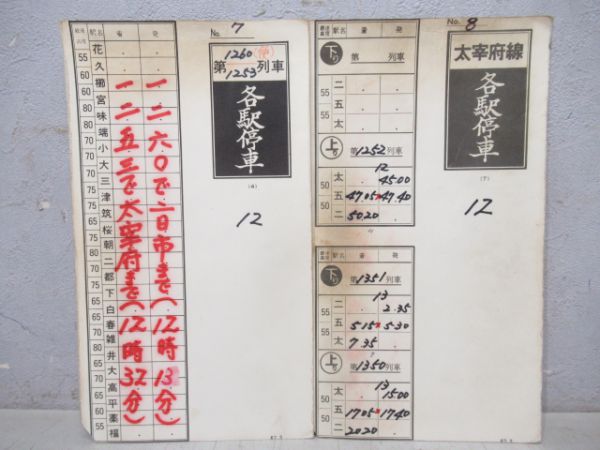 No. 7
駅名 着 発
花
55 久
櫛
60 宮
80 味
70 端
小
60 大
70 三
津
65 筑
75 桜
75 朝
二
60 都
70 下
白
65 春
60 雑
井
55 大
65 高
50 平
60 薬
55 福
一二六〇で二日市まで(12時13分)
一二五三で太宰府まで(12時32分)
1260
第 1253 列車
各駅停車
(6)
12
67.3
No. 8
駅名 着 発
下り 第 列車
二
55 五
50 太
上り 第1252列車
太 12 45.00
50 五 47.05 47.40
55 二 50.20
駅名 着 発
下り 第1351列車
二 13 2.35
55 五 5.15 5.30
50 太 7.35
上り 第1350列車
太 13 15.00
50 五 17.05 17.40
55 二 20.20
太宰府線
各駅停車
(7)
12